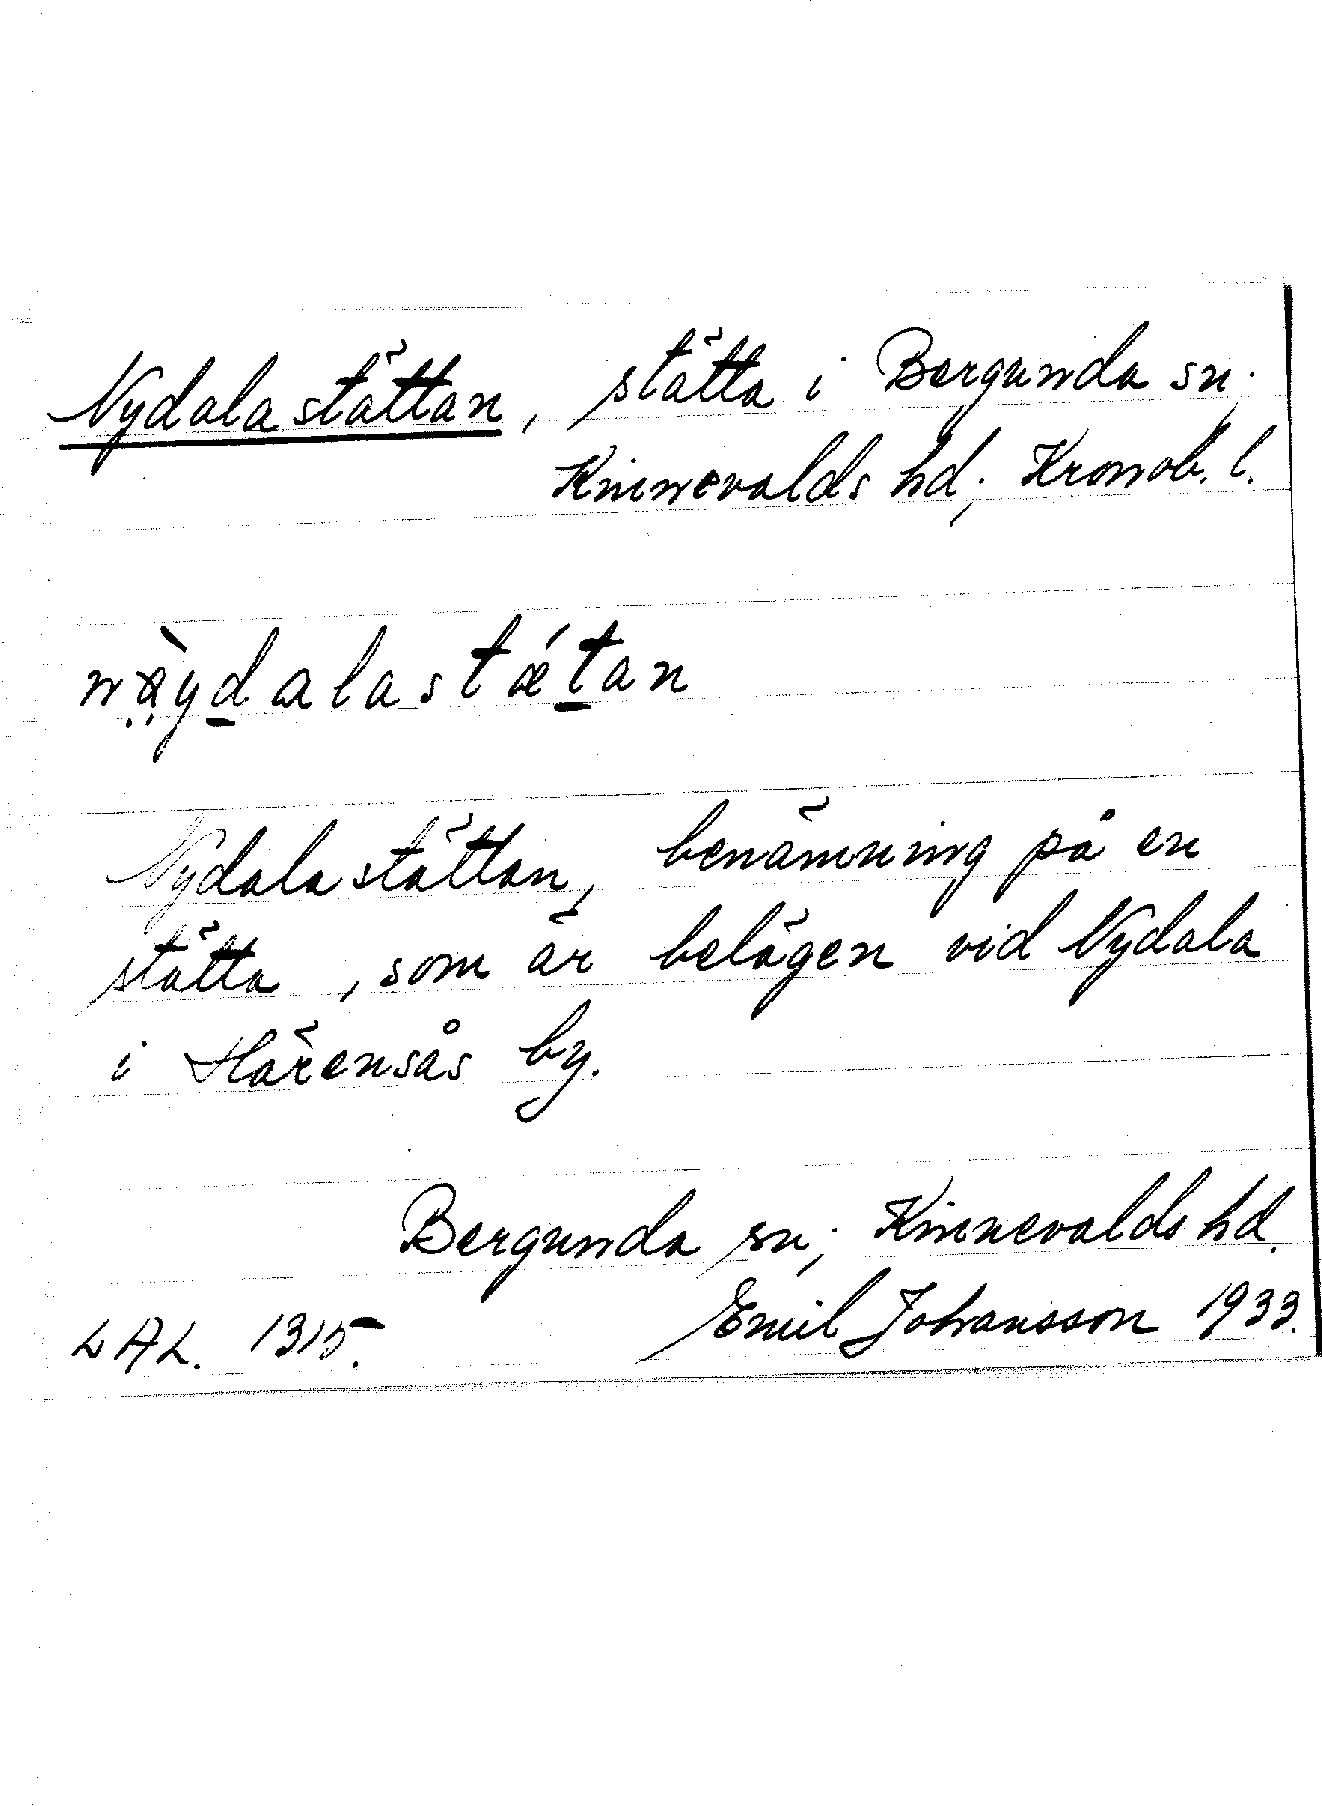 Nydalastättan, stätta i Bergunda sn.
Kinnevalds hd; Kronob. l.
nøydalastǽtan
Nydalastättan, benämning på en
stätta, som är belägen vid Nydala
i Härensås by.
Bergunda sn; Kinnevalds hd.
LAL. 1315. Emil Johansson 1933.